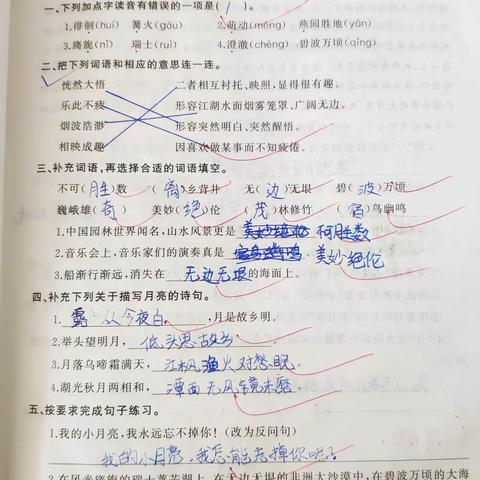 一、下列加点字读音有错误的一项是( 1 )。
1.徘徊(huí) 篝火(gōu) 2.萌动(méng) 燕园胜地(yān)
3.旖旎(nǐ) 瑞士(ruì) 4.澄澈(chéng) 碧波万顷(qǐng)
二、把下列词语和相应的意思连一连。
恍然大悟 二者相互衬托、映照,显得很有趣。
乐此不疲 形容江湖水面烟雾笼罩、广阔无边。
烟波浩渺 形容突然明白、突然醒悟。
相映成趣 因喜欢做某事而不知疲倦。
三、补充词语,再选择合适的词语填空。
不可(胜)数 (离)乡背井 无(边)无垠 碧(波)万顷
巍峨雄(奇) 美妙(绝)伦 (茂)林修竹 (宿)鸟幽鸣
1.中国园林世界闻名,山水风景更是 美妙绝伦 不可胜数
2.音乐会上,音乐家们的演奏真是 宿鸟幽鸣 美妙绝伦
3.船渐行渐远,消失在 无边无垠 的海面上。
四、补充下列关于描写月亮的诗句。
1. 露从今夜白 ,月是故乡明。
2.举头望明月, 低头思故乡 。
3.月落乌啼霜满天, 江枫渔火对愁眠 。
4.湖光秋月两相和, 潭面无风镜未磨 。
五、按要求完成句子练习。
1.我的小月亮,我永远忘不掉你!(改为反问句)
我的小月亮,我怎能忘掉你呢?
2.在风光旖旎的瑞士莱芒湖上,在无边无垠的非洲大沙漠中,在碧波万顷的大海